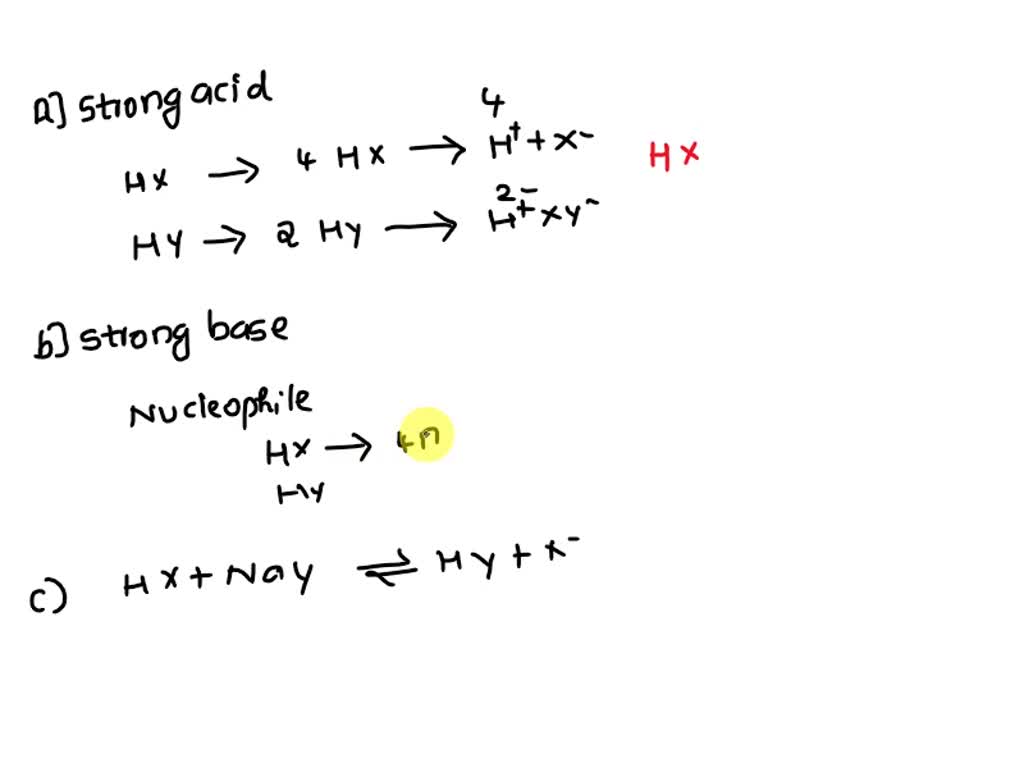 a] strong acid
HX → 4 HX → 4 H⁺ + X⁻ HX
HY → 2 HY → 2⁻ H⁺ x y⁻
b] strong base
Nucleophile
HX → 4n
HY
c) HX + Nay ⇌ Hy + X⁻